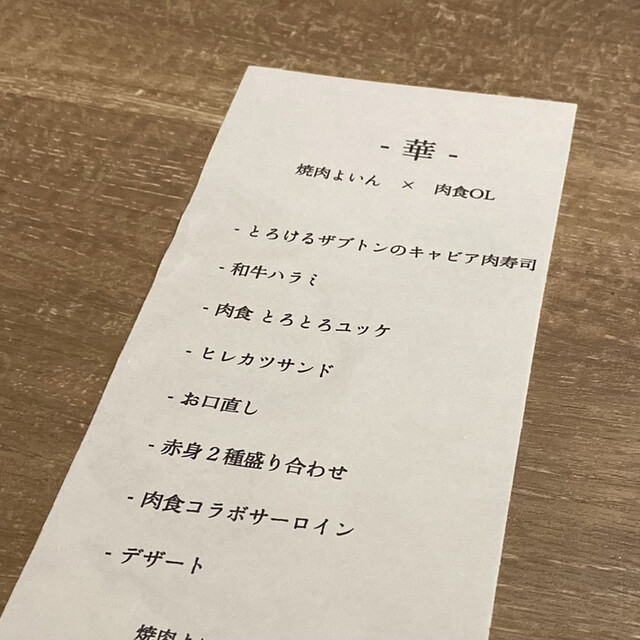 - 華 -
焼肉よいん × 肉食OL
- とろけるザブトンのキャビア肉寿司
- 和牛ハラミ
- 肉食 とろとろユッケ
- ヒレカツサンド
- お口直し
- 赤身2種盛り合わせ
- 肉食コラボサーロイン
- デザート
焼肉よ